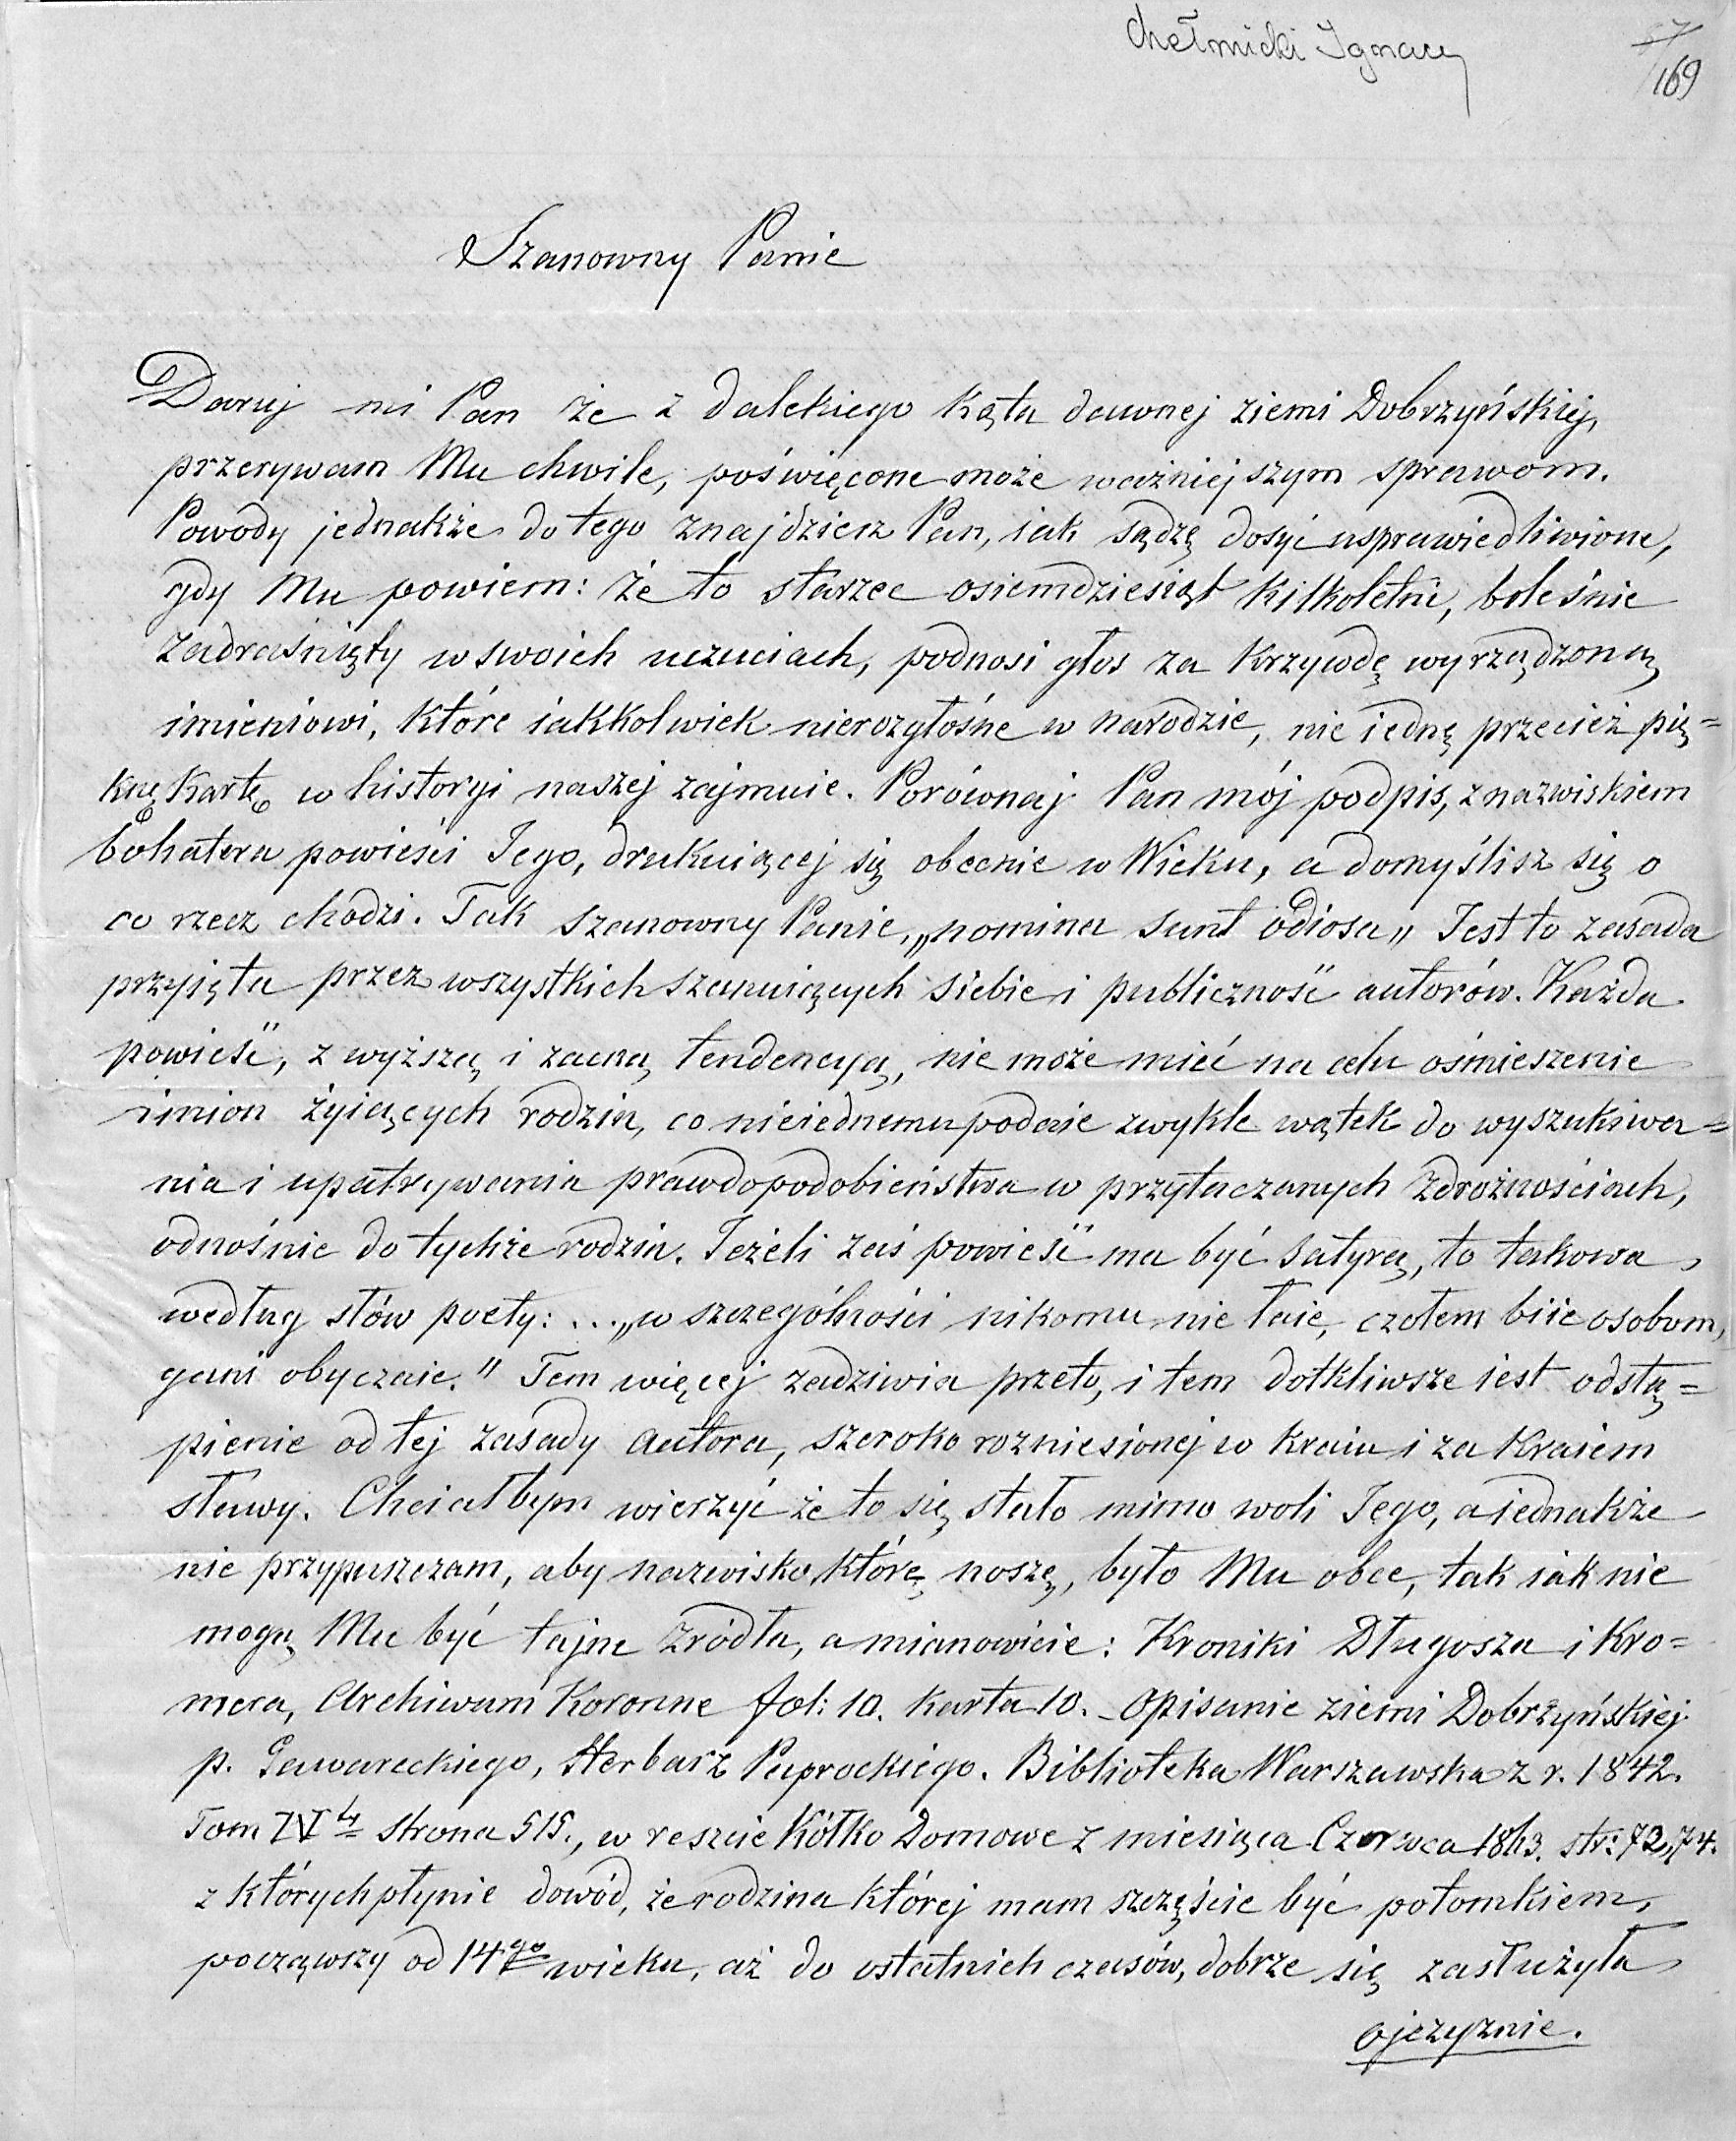 Chełmicki Ignacy
169
Szanowny Panie
Daruj mi Pan że z dalekiego kąta dawnej ziemi Dobrzyńskiej,
przerywam Mu chwile, poświęcone może ważniejszym sprawom.
Powody jednakże do tego znajdziesz Pan, iak sądzę dosyć usprawiedliwione,
gdy Mu powiem: że to starzec osiemdziesiąt kilkoletni, boleśnie
zadraśnięty w swoich uczuciach, podnosi głos za krzywdę wyrządzoną
imieniowi, które iakkolwiek nierozgłośne w narodzie, nie iednę przecież pię=
knę kartę w historyi naszej zajmuie. Porównaj Pan mój podpis, z nazwiskiem
bohatera powieści Jego, drukuiącej się obecnie w Wieku, a domyślisz się o
co rzecz chodzi. Tak szanowny Panie, „nomina sunt odiosa" Jest to zasada
przyięta przez wszystkich szanuiących siebie i publiczność autorów. Każda
powieść, z wyższą i zacną tendencyą, nie może mieć na celu ośmieszenie
imion żyiących rodzin, co nieiednemu podaie zwykle wątek do wyszukiwa=
nia i upatrywania prawdopodobieństwa w przytaczanych zdrożnościach,
odnośnie do tychże rodzin. Jeżeli zaś powieść ma być satyrą, to takowa,
według słów poety: ... „w szczególności nikomu nie łaie, czołem biie osobom,
gani obyczaie." Tem więcej zadziwia przeto, i tem dotkliwsze iest odstą=
pienie od tej zasady autora, szeroko rozniesionej w kraiu i za kraiem
sławy. Chciałbym wierzyć że to się stało mimo woli Jego, a iednakże
nie przypuszczam, aby nazwisko, które noszę, było Mu obce, tak iak nie
mogą Mu być tajne źródła, a mianowicie: Kroniki Długosza i Kro=
mera, Archiwum Koronne fol: 10. karta 10. - Opisanie ziemi Dobrzyńskiej
p. Gawareckiego, Herbarz Paprockiego. Biblioteka Warszawska z r. 1842.
Tom IVty strona 515., w reszcie Kółko Domowe z miesiąca Czerwca 1863. str: 73,,74.
z których płynie dowód, że rodzina której mam szczęście być potomkiem,
począwszy od 14go wieku, aż do ostatnich czasów, dobrze się zasłużyła
ojczyznie.